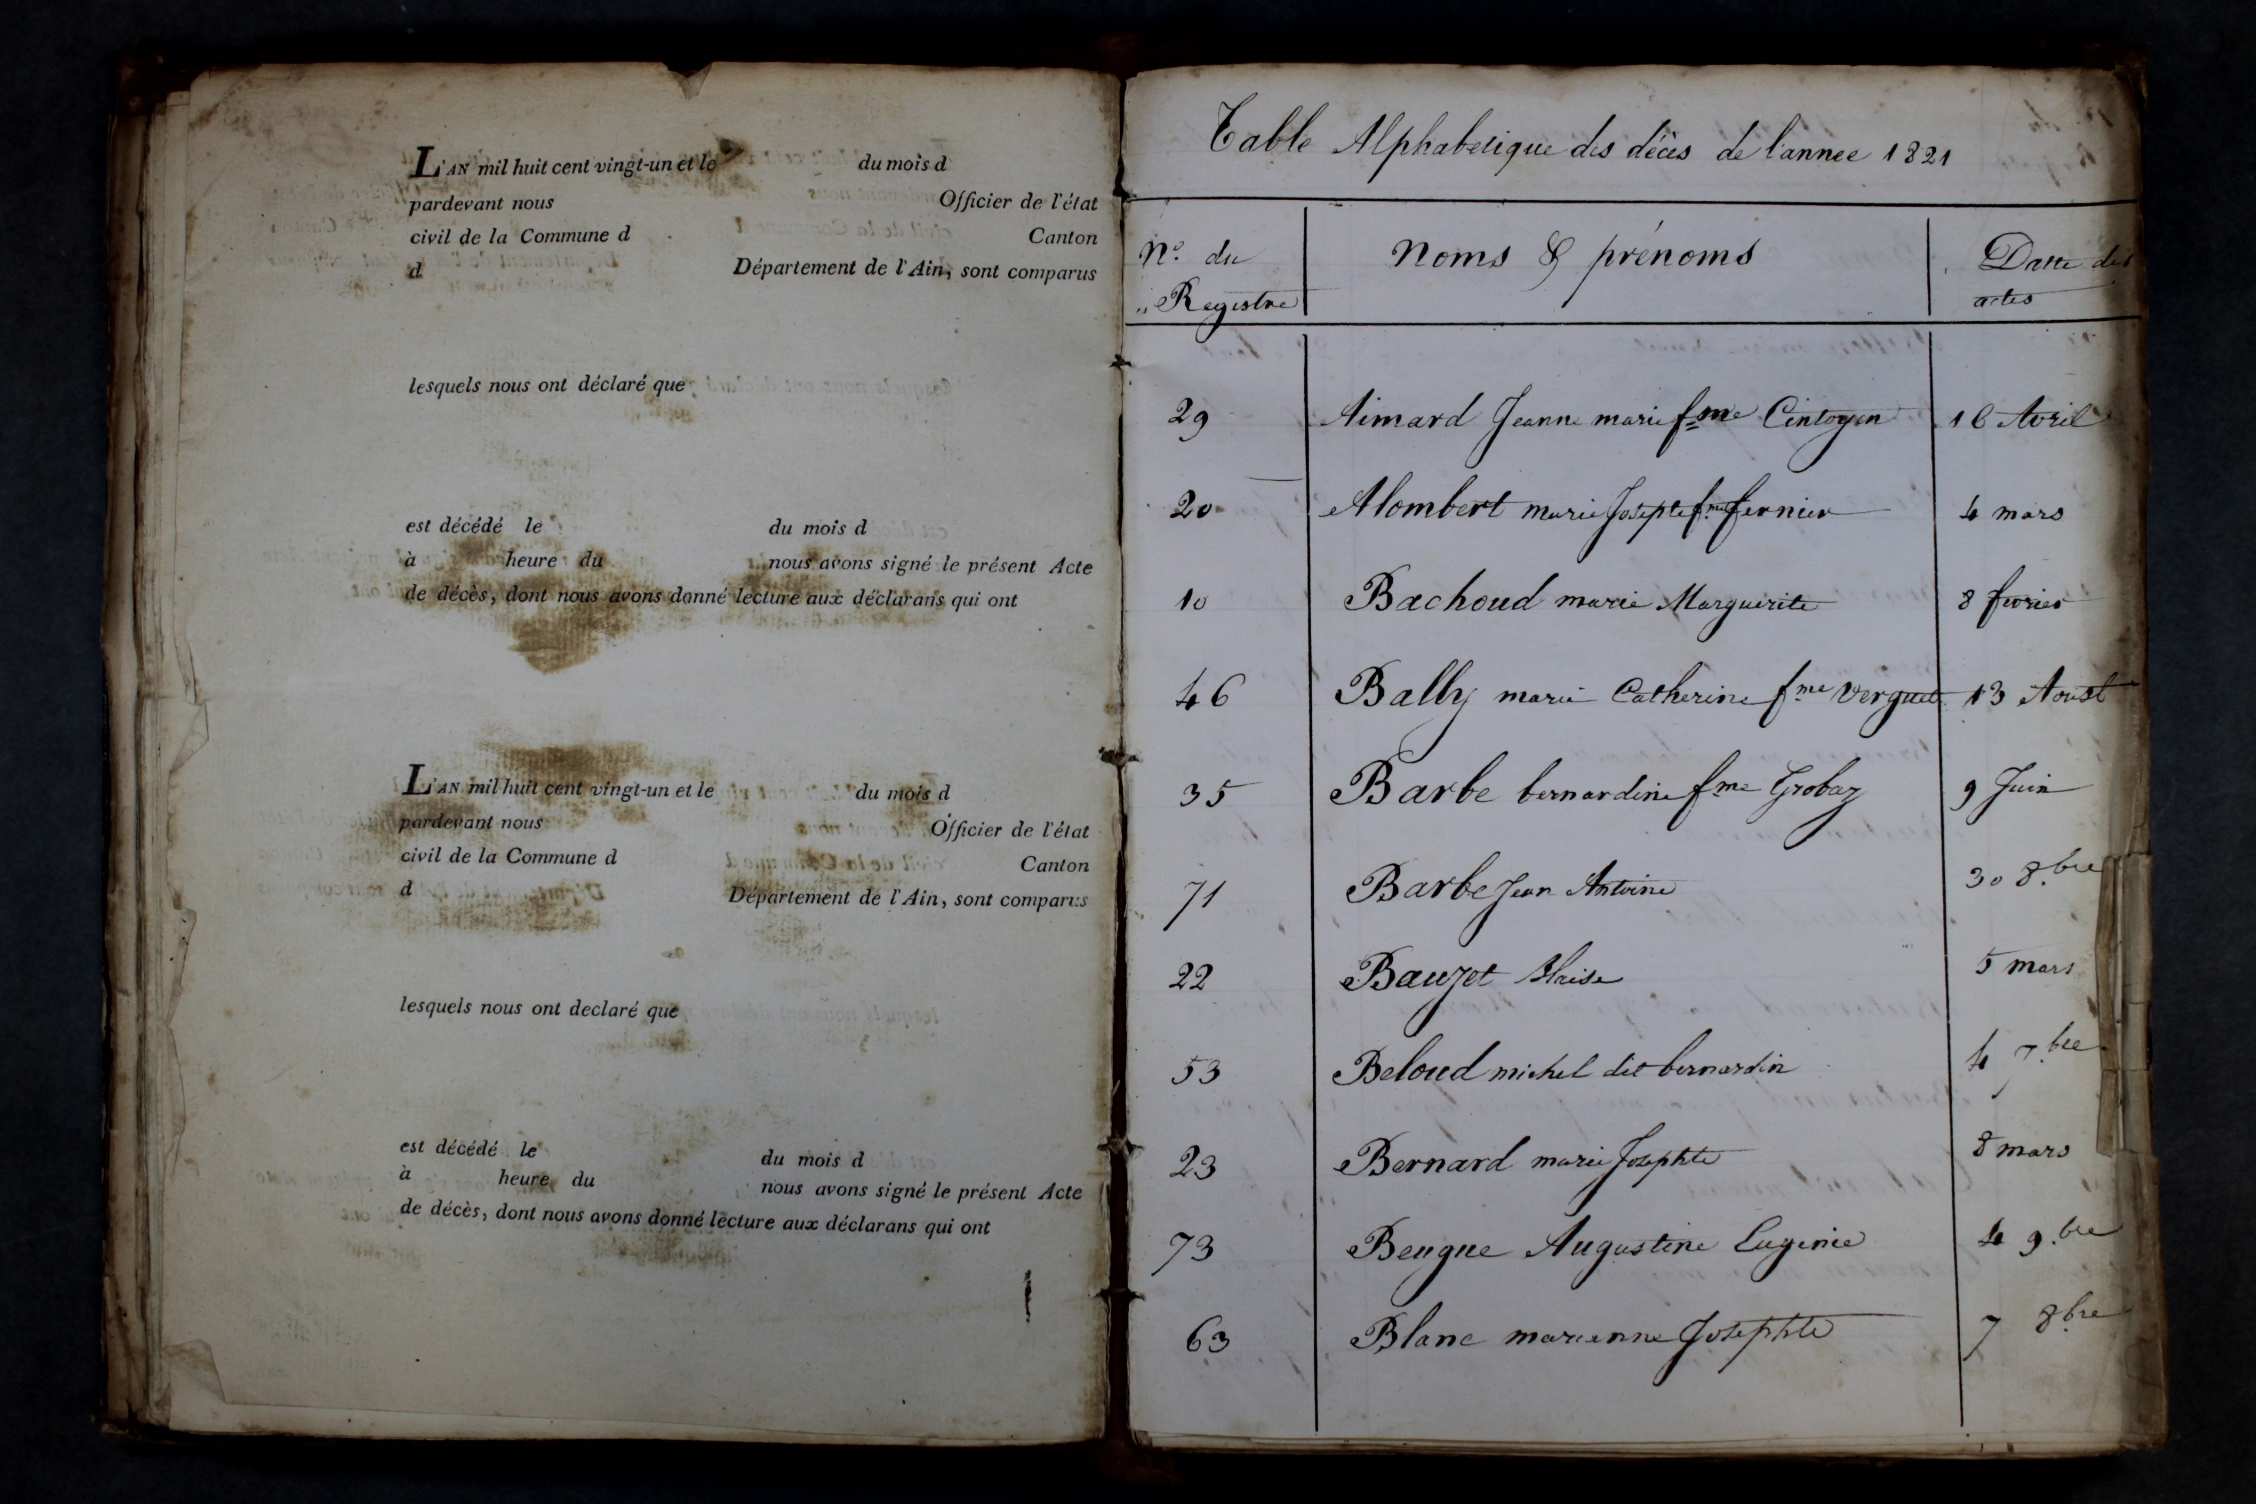 L'AN mil huit cent vingt-un et le du mois d
pardevant nous Officier de l'état
civil de la Commune d Canton
d Département de l'Ain, sont comparus
lesquels nous ont déclaré que
est décédé le du mois d
à heure du nous avons signé le présent Acte
de décès, dont nous avons donné lecture aux déclarans qui ont
L'AN mil huit cent vingt-un et le du mois d
pardevant nous Officier de l'état
civil de la Commune d Canton
d Département de l'Ain, sont comparus
lesquels nous ont declaré que
est décédé le du mois d
à heure du nous avons signé le présent Acte
de décès, dont nous avons donné lecture aux déclarans qui ont
Table Alphabetique des décès de l'annee 1821
N.º du Noms & prénoms Datte des
Registre actes
29 Aimard Jeanne marie fme Cintoyen 16 Avril
20 Alombert marie Josephte fme fernier 4 mars
10 Bachoud marie Marguerite 8 fevrier
46 Bally marie Catherine fme Verguet 13 Aoust
35 Barbe bernardine fme Grobaz 9 Juin
71 Barbe Jean Antoine 30 8.bre
22 Bauzet Blaise 5 mars
53 Beloud michel dit bernardin 4 7.bre
23 Bernard marie Josephte 8 mars
73 Beugue Augustine Eugenie 4 9.bre
63 Blanc marienne Josephte 7 8bre